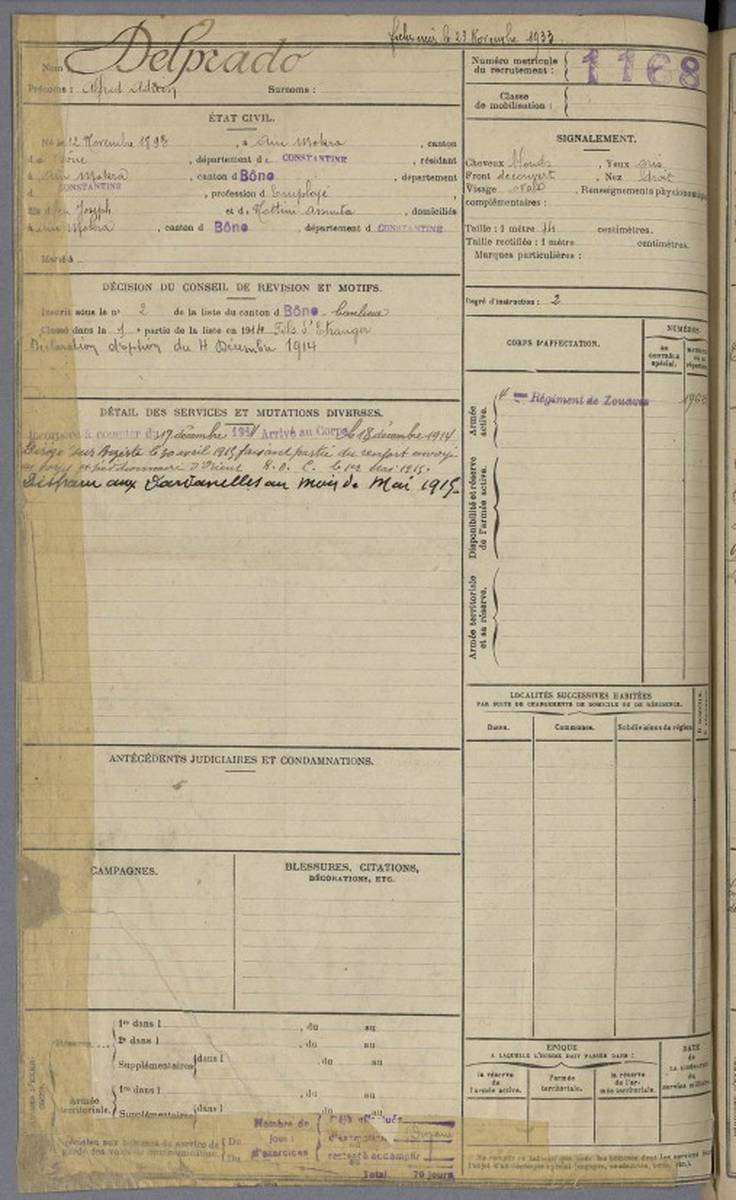 le 23 Novembre 1933
Nom Delprado
Prénoms : Alfred Surnoms :
Numéro matricule du recrutement : 1168
Classe de mobilisation :
ÉTAT CIVIL.
Né le 12 Novembre 1893, à Aïn Mokra, canton
de Bône, département de CONSTANTINE, résidant
à Aïn Mokra, canton d Bône, département
d CONSTANTINE, profession d Employé,
fils d feu Joseph et d Mattini Assunta, domiciliés
à Aïn Mokra, canton d Bône, département d CONSTANTINE
Marié à
SIGNALEMENT.
Cheveux blonds, Yeux gris
Front découvert, Nez droit
Visage oval, Renseignements physionomiques
complémentaires :
Taille : 1 mètre centimètres.
Taille rectifiée : 1 mètre centimètres.
Marques particulières :
Degré d'instruction : 2
DÉCISION DU CONSEIL DE REVISION ET MOTIFS.
Inscrit sous le n° 2 de la liste du canton d Bône - banlieue
Classé dans la 1 e partie de la liste en 1914 Fils d'Etranger
Déclaration d'option du 4 Décembre 1914
DÉTAIL DES SERVICES ET MUTATIONS DIVERSES.
Incorporé à compter du 17 décembre 1914 Arrivé au Corps le 18 décembre 1914
Dirigé sur Bizerte le 30 avril 1915 faisant partie du renfort envoyé
au corps expéditionnaire d'Orient le 1er Mai 1915.
Disparu aux Dardanelles au mois de Mai 1915.
CORPS D'AFFECTATION.
NUMÉROS
au contrôle spécial.
Armée active.
4 ème Régiment de Zouaves
Disponibilité et réserve de l'armée active.
Armée territoriale et sa réserve.
LOCALITÉS SUCCESSIVES HABITÉES
PAR SUITE DE CHANGEMENTS DE DOMICILE OU DE RÉSIDENCE.
Dates. Communes. Subdivisions de région
ANTÉCÉDENTS JUDICIAIRES ET CONDAMNATIONS.
CAMPAGNES.
BLESSURES, CITATIONS,
DÉCORATIONS, ETC.
Réserve....
1re dans l , du au
2e dans l , du au
Supplémentaires dans l , du au
Armée territoriale.
1re dans l , du au
Supplémentaires dans l , du au
Nombre de jours d'exercices
Déjà effectués
d'exemption
restant à accomplir
Total 70 jours
ÉPOQUE
A LAQUELLE L'HOMME DOIT PASSER DANS :
la réserve de l'armée active.
l'armée territoriale.
la réserve de l'armée territoriale.
DATE
de
LA LIBÉRATION
du
service militaire.